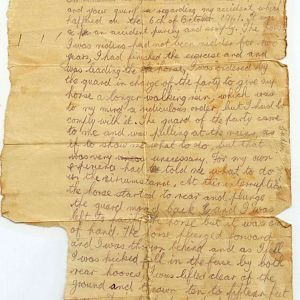 on
and your query is regarding my accident which
happened on the 6th of October
an accident purely and simply. The
I was riding had not been ridden for two
years, I had finished the exercise and and
was leading the horse, I was ordered by
in charge of the party to give my
horse a longer walking rein, which was
to my mind a ridiculous order, but I had to
comply with it. The guard of the party came
to me and was pulling at the reins, as
if to show me what to do, but that
was very unnecessary. For my own
experience had told me what to do
in the circumstance. At this interruption
the horse started to rear and plunge
the guard back and I was
left to horse but it was out
of hand. The horse plunged forward
and I was thrown behind and as I fell
I was picked full in the face by both
rear hooves, I was lifted clear of the
ground and thrown ten to fifteen feet